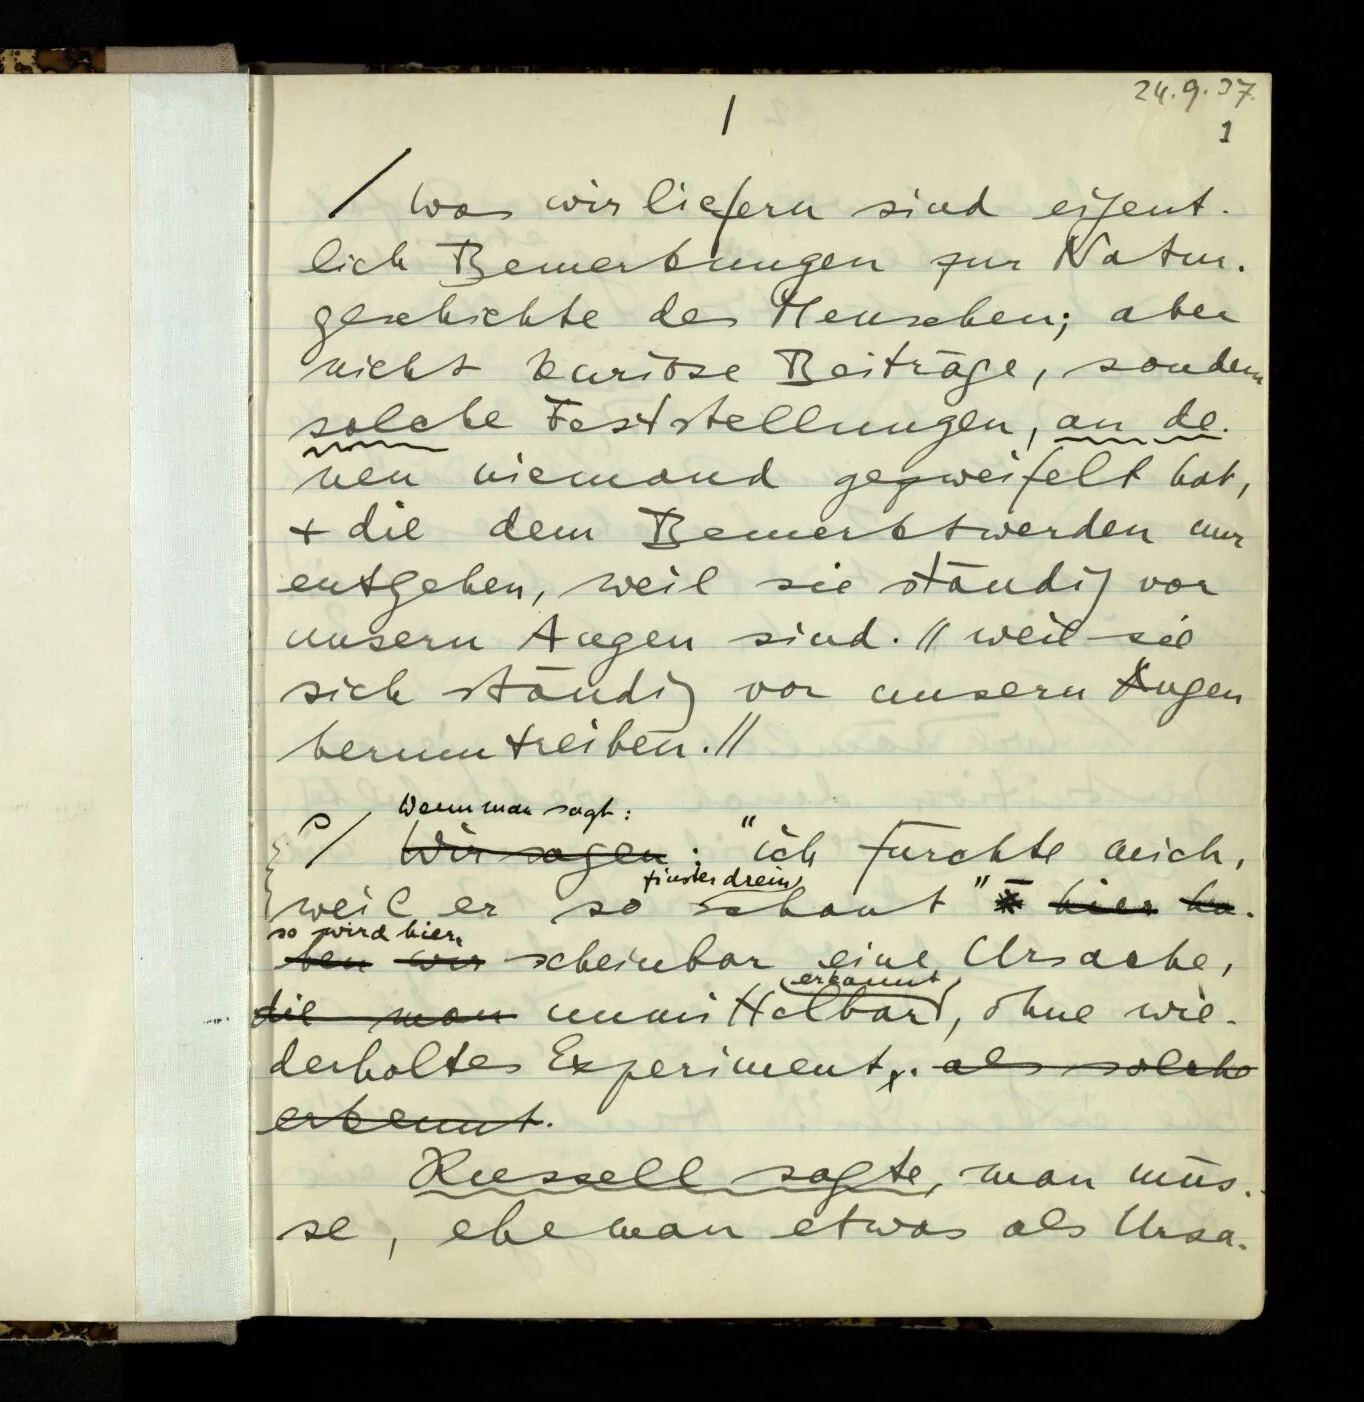 24.9.37.
1
/
/ Was wir liefern sind eigent-
lich Bemerkungen zur Natur-
geschichte des Menschen; aber
nicht kuriose Beiträge, sondern
solche Feststellungen, an de-
nen niemand gezweifelt hat,
+ die dem Bemerktwerden nur
entgehen, weil sie ständig vor
unsern Augen sind. // weil sie
sich ständig vor unsern Augen
herumtreiben. //
Wenn man sagt:
/ Wir sagen: "ich fürchte mich,
finster drein
weil er so schaut" hier ha-
so wird hier
ben wir scheinbar eine Ursache,
erkannt
die man unmittelbar, ohne wie-
derholtes Experiment, als solche
erkennt.
Russell sagte, man müs-
se, ehe man etwas als Ursa-